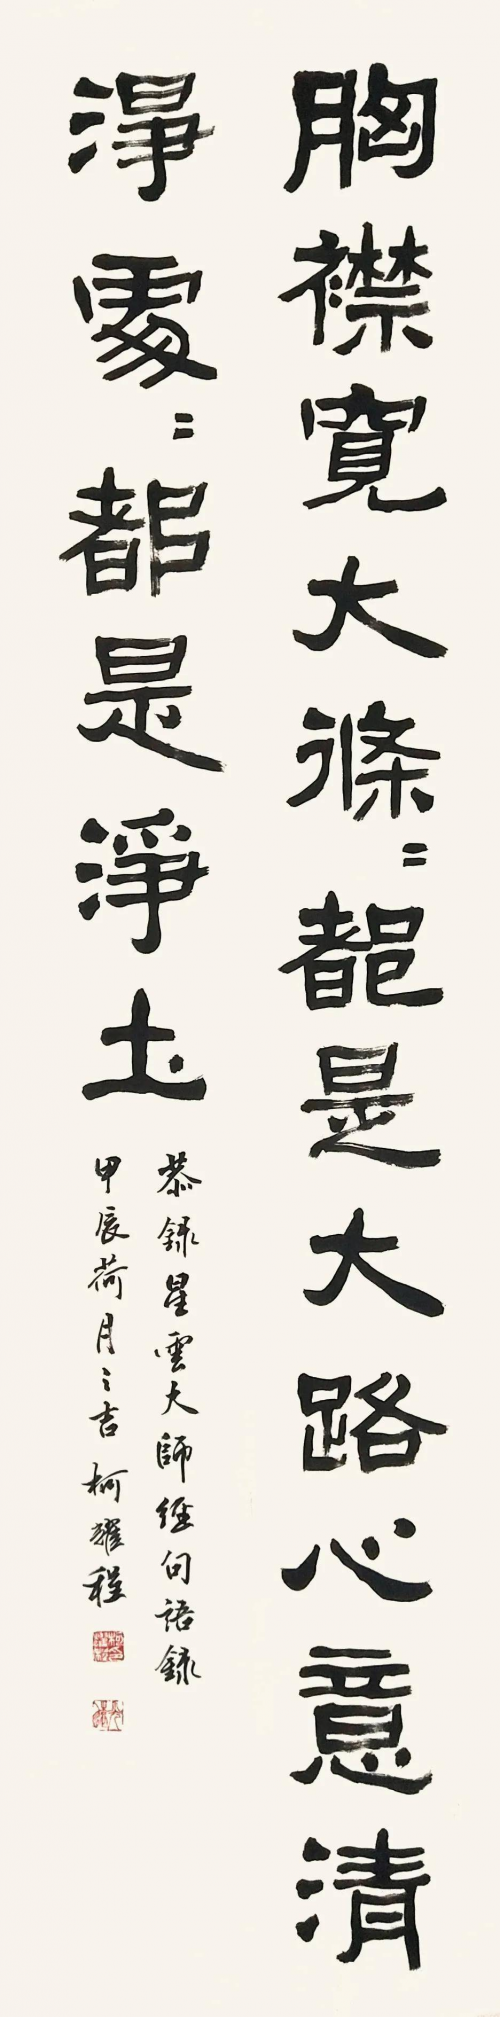 胸襟寬大條〻都是大路心意清
淨處〻都是淨土
恭録星雲大師經句語録
甲辰荷月之吉柯耀程